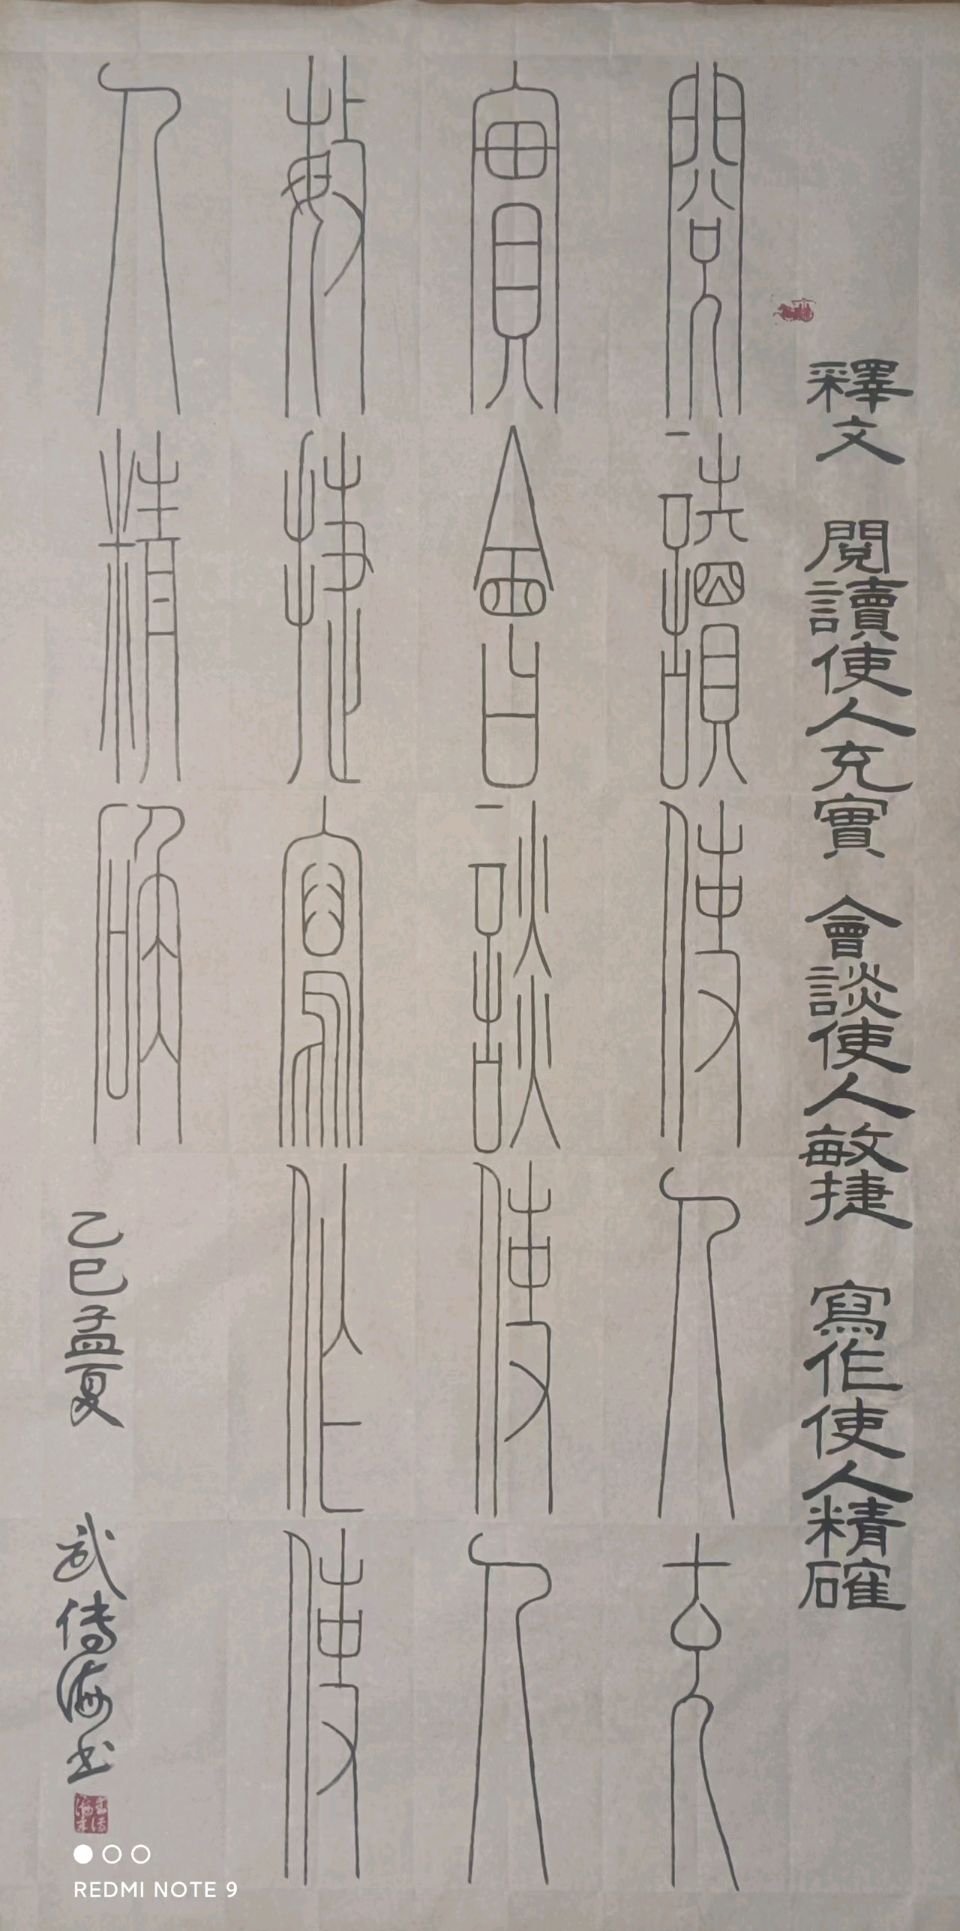 釋文 閱讀使人充實 會談使人敏捷 寫作使人精確
閱讀使人充
實會談使人
敏捷寫作使
人精確
乙巳孟夏 武傳海书
REDMI NOTE 9